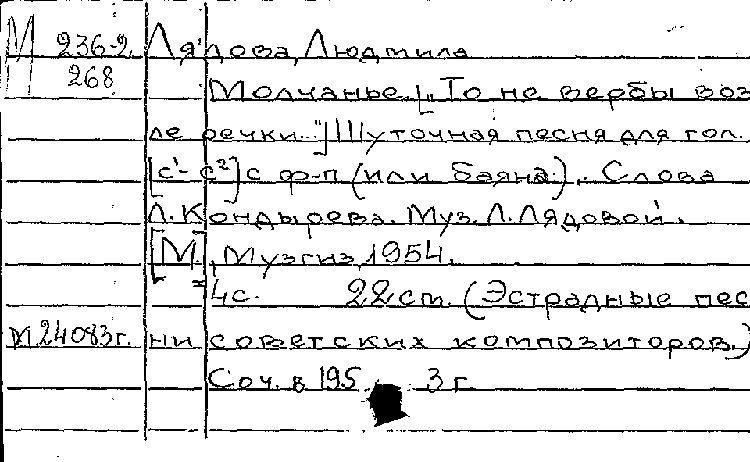 М 236-2 Лядова, Людмила
268
Молчанье. ["То не вербы воз
ле речки..."] Шуточная песня для гол.
[c¹-c²] с ф-п (или баяна). Слова
Л. Кондырева. Муз. Л. Лядовой.
[М.], Музгиз, 1954.
4с. 22см. (Эстрадные пес
м24083г. ни советских композиторов.)
Соч. в 195 3 г